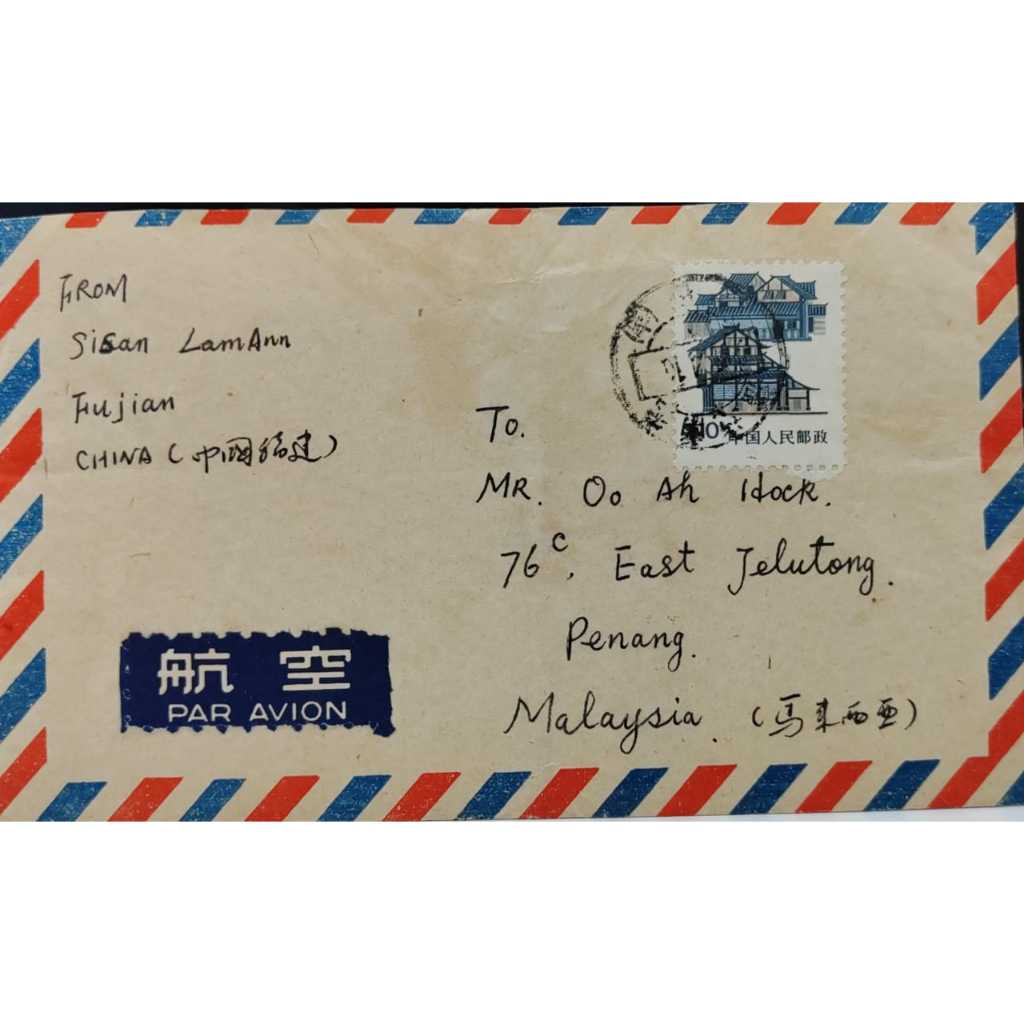 FROM
Sisan LamAnn
Fujian
CHINA (中国福建)
10 中国人民邮政
To.
MR. Oo Ah Hock.
76c, East Jelutong.
Penang.
Malaysia. (马来西亚)
航空
PAR AVION